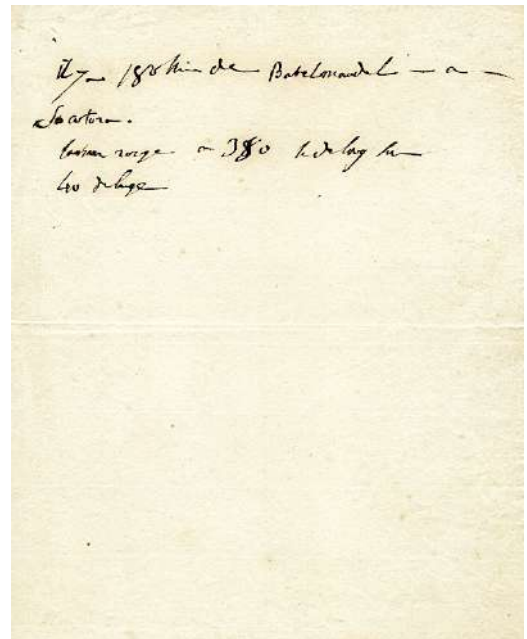 il y a 180 lieu de Babelmandel – a –
Socotora.
la mer rouge a 380 l. de long sur
40 de large